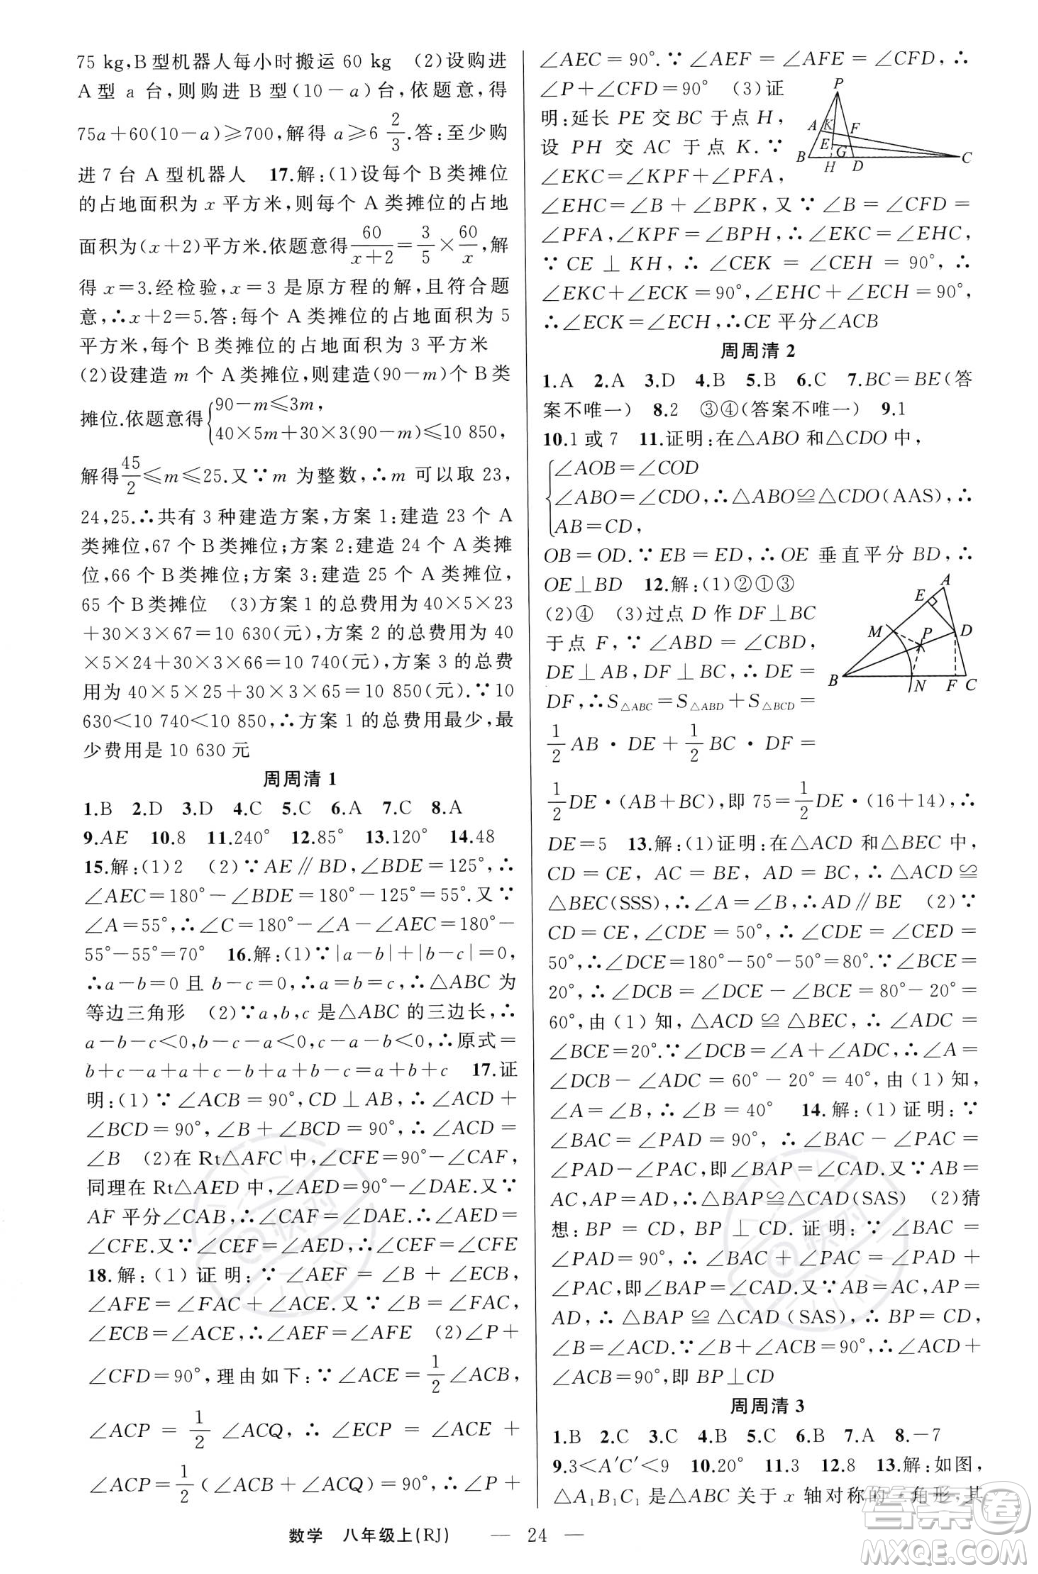 75 kg,B型机器人每小时搬运60 kg　(2)设购进
A型 a 台,则购进 B 型(10－a)台,依题意,得
75a＋60(10－a)≥700,解得 a≥6 2/3.答:至少购
进7台A型机器人　17.解:(1)设每个B类摊位
的占地面积为 x 平方米,则每个 A 类摊位的占地
面积为(x＋2)平方米.依题意得60/(x＋2)＝3/5×60/x,解
得 x＝3.经检验,x＝3 是原方程的解,且符合题
意,∴x＋2＝5.答:每个 A 类摊位的占地面积为 5
平方米,每个 B 类摊位的占地面积为 3 平方米
(2)设建造 m 个 A 类摊位,则建造(90－m)个 B 类
摊位.依题意得{90－m≤3m,
40×5m＋30×3(90－m)≤10 850,
解得45/2≤m≤25.又∵m 为整数,∴m 可以取 23,
24,25.∴共有 3 种建造方案,方案 1:建造 23 个 A
类摊位,67 个 B类摊位;方案 2:建造 24 个 A类摊
位,66 个 B类摊位;方案 3:建造 25 个 A类摊位,
65 个 B类摊位　(3)方案 1 的总费用为 40×5×23
＋30×3×67＝10 630(元),方案 2 的总费用为 40
×5×24＋30×3×66＝10 740(元),方案 3 的总费
用为 40×5×25＋30×3×65＝10 850(元).∵10
630＜10 740＜10 850,∴方案 1 的总费用最少,最
少费用是 10 630 元
周周清 1
1.B　2.D　3.D　4.C　5.C　6.A　7.C　8.A
9.AE　10.8　11.240°　12.85°　13.120°　14.48
15.解:(1)2　(2)∵AE∥BD,∠BDE＝125°,∴
∠AEC＝180°－∠BDE＝180°－125°＝55°.又∵
∠A＝55°,∴∠C＝180°－∠A－∠AEC＝180°－
55°－55°＝70°　16.解:(1)∵|a－b|＋|b－c|＝0,
∴a－b＝0且b－c＝0,∴a＝b＝c,∴△ABC 为
等边三角形　(2)∵a,b,c 是△ABC 的三边长,∴
a－b－c＜0,b－c－a＜0,c－a－b＜0,∴原式＝
b＋c－a＋a－b＋c＋a＋b－c＝a＋b＋c　17.证
明:(1)∵∠ACB＝90°,CD⊥AB,∴∠ACD＋
∠BCD＝90°,∠B＋∠BCD＝90°,∴∠ACD＝
∠B　(2)在 Rt△AFC 中,∠CFE＝90°－∠CAF,
同理在 Rt△AED 中,∠AED＝90°－∠DAE.又∵
AF 平分∠CAB,∴∠CAF＝∠DAE,∴∠AED＝
∠CFE.又∵∠CEF＝∠AED,∴∠CEF＝∠CFE
18.解:(1)证明:∵∠AEF＝∠B＋∠ECB,
∠AFE＝∠FAC＋∠ACE.又∵∠B＝∠FAC,
∠ECB＝∠ACE,∴∠AEF＝∠AFE　(2)∠P＋
∠CFD＝90°,理由如下:∵∠ACE＝1/2∠ACB,
∠ACP＝1/2∠ACQ,∴∠ECP＝∠ACE＋
∠ACP＝1/2(∠ACB＋∠ACQ)＝90°,∴∠P＋
∠AEC＝90°.∵∠AEF＝∠AFE＝∠CFD,
∴∠P＋∠CFD＝90°　(3)证
明:延长 PE 交 BC 于点 H,
设 PH 交 AC 于点 K.∵
∠EKC＝∠KPF＋∠PFA,
∠EHC＝∠B＋∠BPK,又∵∠B＝∠CFD＝
∠PFA,∠KPF＝∠BPH,∴∠EKC＝∠EHC,
∵CE⊥KH,∴∠CEK＝∠CEH＝90°,∴
∠EKC＋∠ECK＝90°,∠EHC＋∠ECH＝90°,
∴∠ECK＝∠ECH,∴CE 平分∠ACB
P
A K F
E
B G C
H D
周周清 2
1.A　2.A　3.D　4.B　5.B　6.C　7.BC＝BE(答
案不唯一)　8.2　③④(答案不唯一)　9.1
10.1 或 7　11.证明:在△ABO 和△CDO 中,
{∠AOB＝∠COD
∠ABO＝∠CDO,∴△ABO≌△CDO(AAS),∴
AB＝CD,
OB＝OD.∵EB＝ED,∴OE 垂直平分 BD,∴
OE⊥BD　12.解:(1)②①③
(2)④　(3)过点 D 作 DF⊥BC
于点 F,∵∠ABD＝∠CBD,
DE⊥AB,DF⊥BC,∴DE＝
DF,∴S△ABC＝S△ABD＋S△BCD＝
1/2AB·DE＋1/2BC·DF＝
A
E
M P D
B N F C
1/2DE·(AB＋BC),即 75＝1/2DE·(16＋14),∴
DE＝5　13.解:(1)证明:在△ACD 和△BEC 中,
CD＝CE,AC＝BE,AD＝BC,∴△ACD≌
△BEC(SSS),∴∠A＝∠B,∴AD∥BE　(2)∵
CD＝CE,∠CDE＝50°,∴∠CDE＝∠CED＝
50°,∴∠DCE＝180°－50°－50°＝80°.∵∠BCE＝
20°,∴∠DCB＝∠DCE－∠BCE＝80°－20°＝
60°,由(1)知,△ACD≌△BEC,∴∠ADC＝
∠BCE＝20°.∵∠DCB＝∠A＋∠ADC,∴∠A＝
∠DCB－∠ADC＝60°－20°＝40°,由(1)知,
∠A＝∠B,∴∠B＝40°　14.解:(1)证明:∵
∠BAC＝∠PAD＝90°,∴∠BAC－∠PAC＝
∠PAD－∠PAC,即∠BAP＝∠CAD.又∵AB＝
AC,AP＝AD,∴△BAP≌△CAD(SAS)　(2)猜
想:BP＝CD,BP⊥CD.证明:∵∠BAC＝
∠PAD＝90°,∴∠BAC＋∠PAC＝∠PAD＋
∠PAC,即∠BAP＝∠CAD.又∵AB＝AC,AP＝
AD,∴△BAP≌△CAD(SAS),∴BP＝CD,
∠B＝∠ACD.∵∠B＋∠ACB＝90°,∴∠ACB＋
∠ACD＝90°,即 BP⊥CD
周周清 3
1.B　2.C　3.C　4.B　5.C　6.B　7.A　8.－7
9.3＜A′C′＜9　10.20°　11.3　12.8　13.解:如图,
△A₁B₁C₁是△ABC 关于 x 轴对称的三角形.其
数学　八年级上(RJ)　— 24 —
答案圈
MXQE.COM